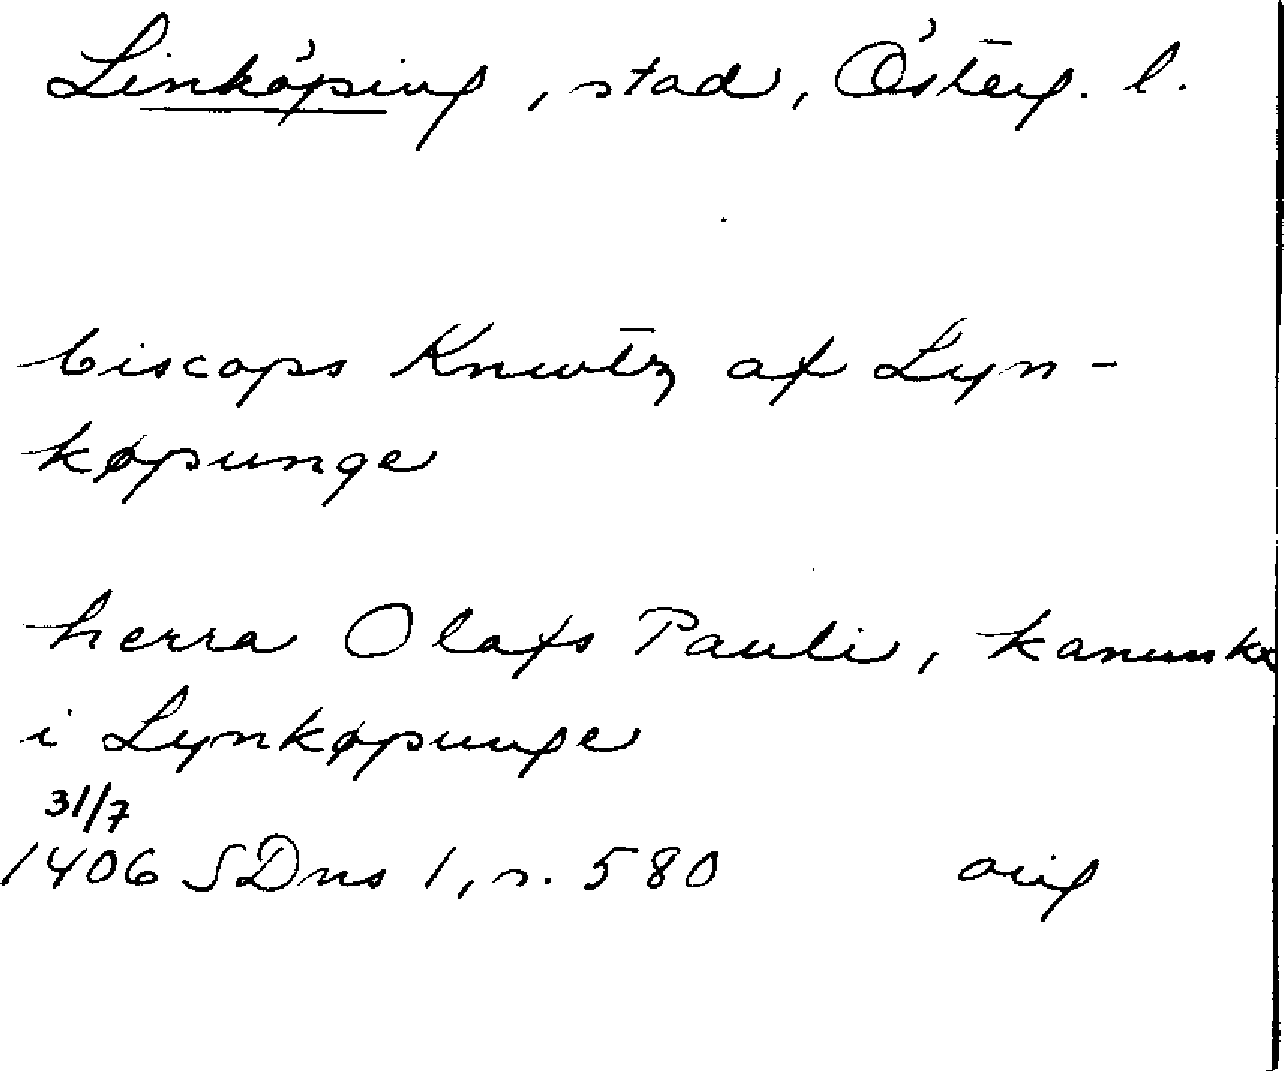 Linköping, stad, Österg. l.
biscops Knwtz af Lyn-
køpunge
herra Olafs Pauli, kanunks
i Lynkøpunge
31/7
1406 SDns 1, s. 580 orig